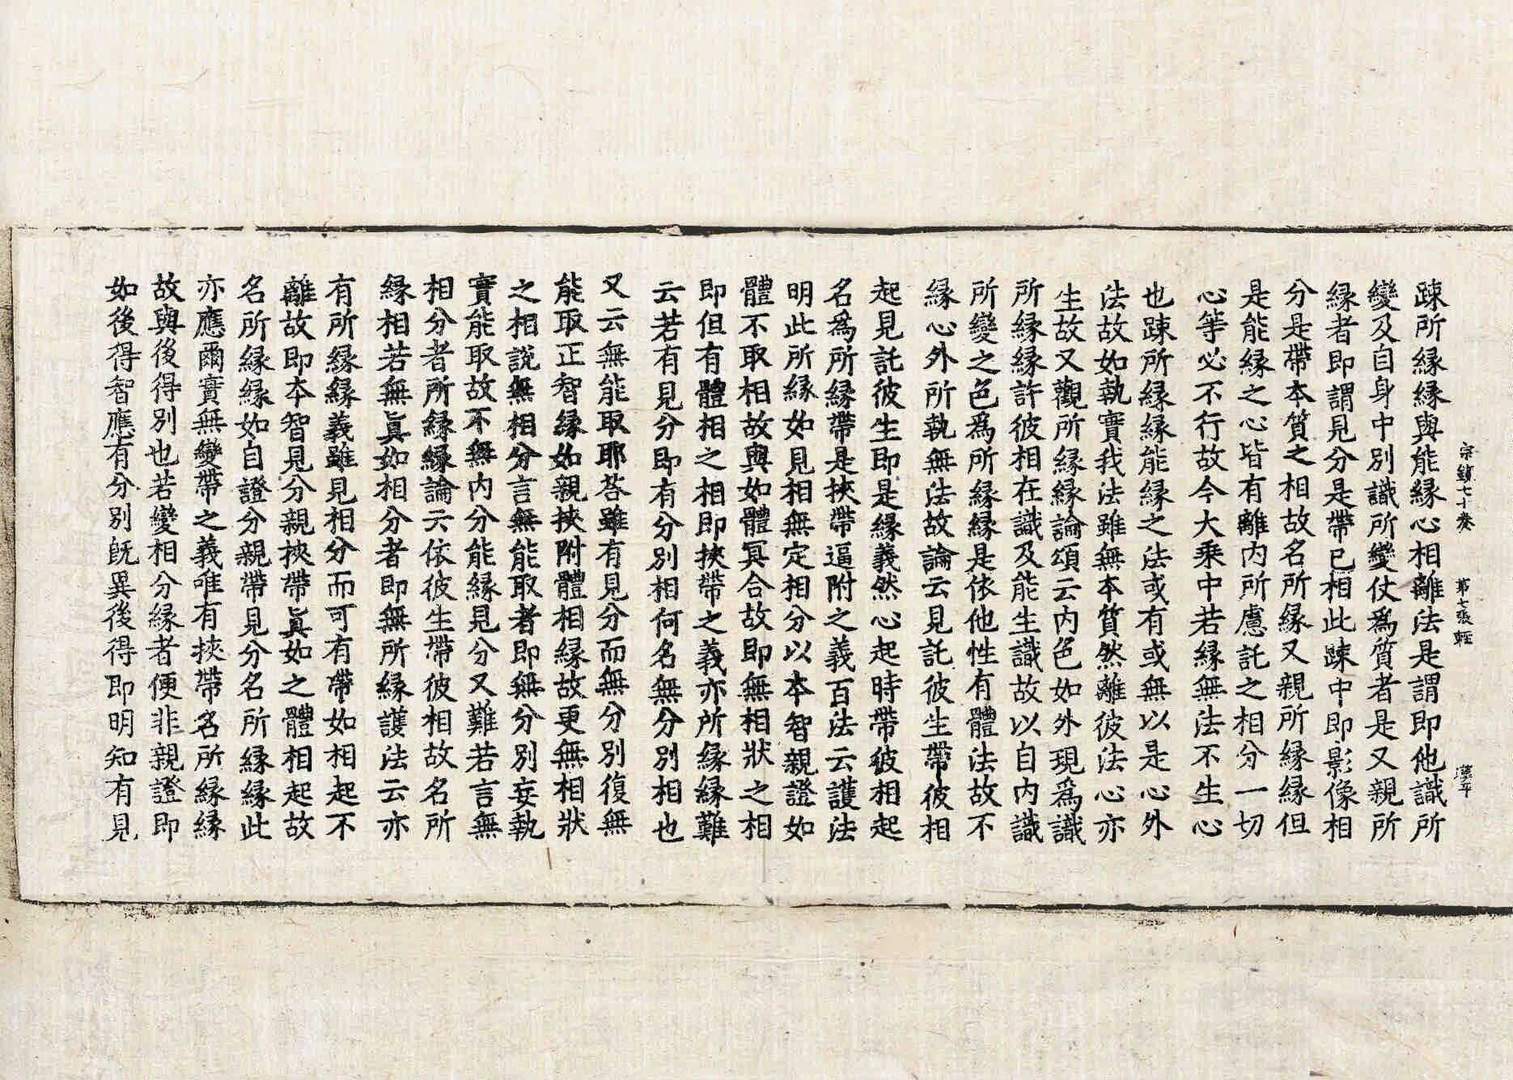 宗鏡七十卷 第七張 輕
踈所緣緣與能緣心相離法是謂即他識所
變及自身中別識所變仗爲質者是又親所
緣者即謂見分是帶已相此踈中即影像相
分是帶本質之相故名所緣又親所緣緣但
是能緣之心皆有離內所慮託之相分一切
心等必不行故今大乘中若緣無法不生心
也踈所緣緣能緣之法或有或無以是心外
法故如執實我法雖無本質然離彼法心亦
生故又觀所緣緣論頌云內色如外現爲識
所緣緣許彼相在識及能生識故以自內識
所變之色爲所緣緣是依他性有體法故不
緣心外所執無法故論云見託彼生帶彼相
起見託彼生即是緣義然心起時帶彼相起
名爲所緣帶是挾帶逼附之義百法云護法
明此所緣如見相無定相分以本智親證如
體不取相故與如體冥合故即無相狀之相
即但有體相之相即挾帶之義亦所緣緣難
云若有見分即有分別相何名無分別相也
又云無能取耶荅雖有見分而無分別復無
能取正智緣如親挾附體相緣故更無相狀
之相說無相分言無能取者即無分別妄執
實能取故不無內分能緣見分又難若言無
相分者所緣緣論云依彼生帶彼相故名所
緣相若無眞如相分者即無所緣護法云亦
有所緣緣義雖見相分而可有帶如相起不
離故即本智見分親挾帶眞如之體相起故
名所緣緣如自證分親帶見分名所緣緣此
亦應爾實無變帶之義唯有挾帶名所緣緣
故與後得別也若變相分緣者便非親證即
如後得智應有分別旣異後得即明知有見